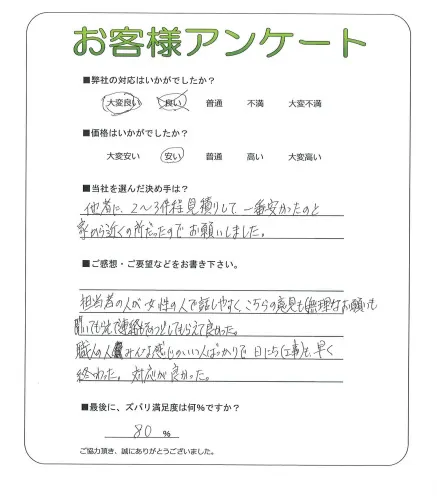 お客様アンケート
■弊社の対応はいかがでしたか？
大変良い 良い 普通 不満 大変不満
■価格はいかがでしたか？
大変安い 安い 普通 高い 大変高い
■当社を選んだ決め手は？
他者に、2～3件程見積りして、一番安かったのと
家から近くの所だったのでお願いしました。
■ご感想・ご要望などをお書き下さい。
担当者の人が女性の人で話しやすく、こちらの意見も無理なお願いも
聞いてもらえて連絡も
してもらえて良かった。
職人の人みんな感じのいい人ばっかりで日にち(工事)も早く
終わった。対応が良かった。
■最後に、ズバリ満足度は何％ですか？
80 %
ご協力頂き、誠にありがとうございました。